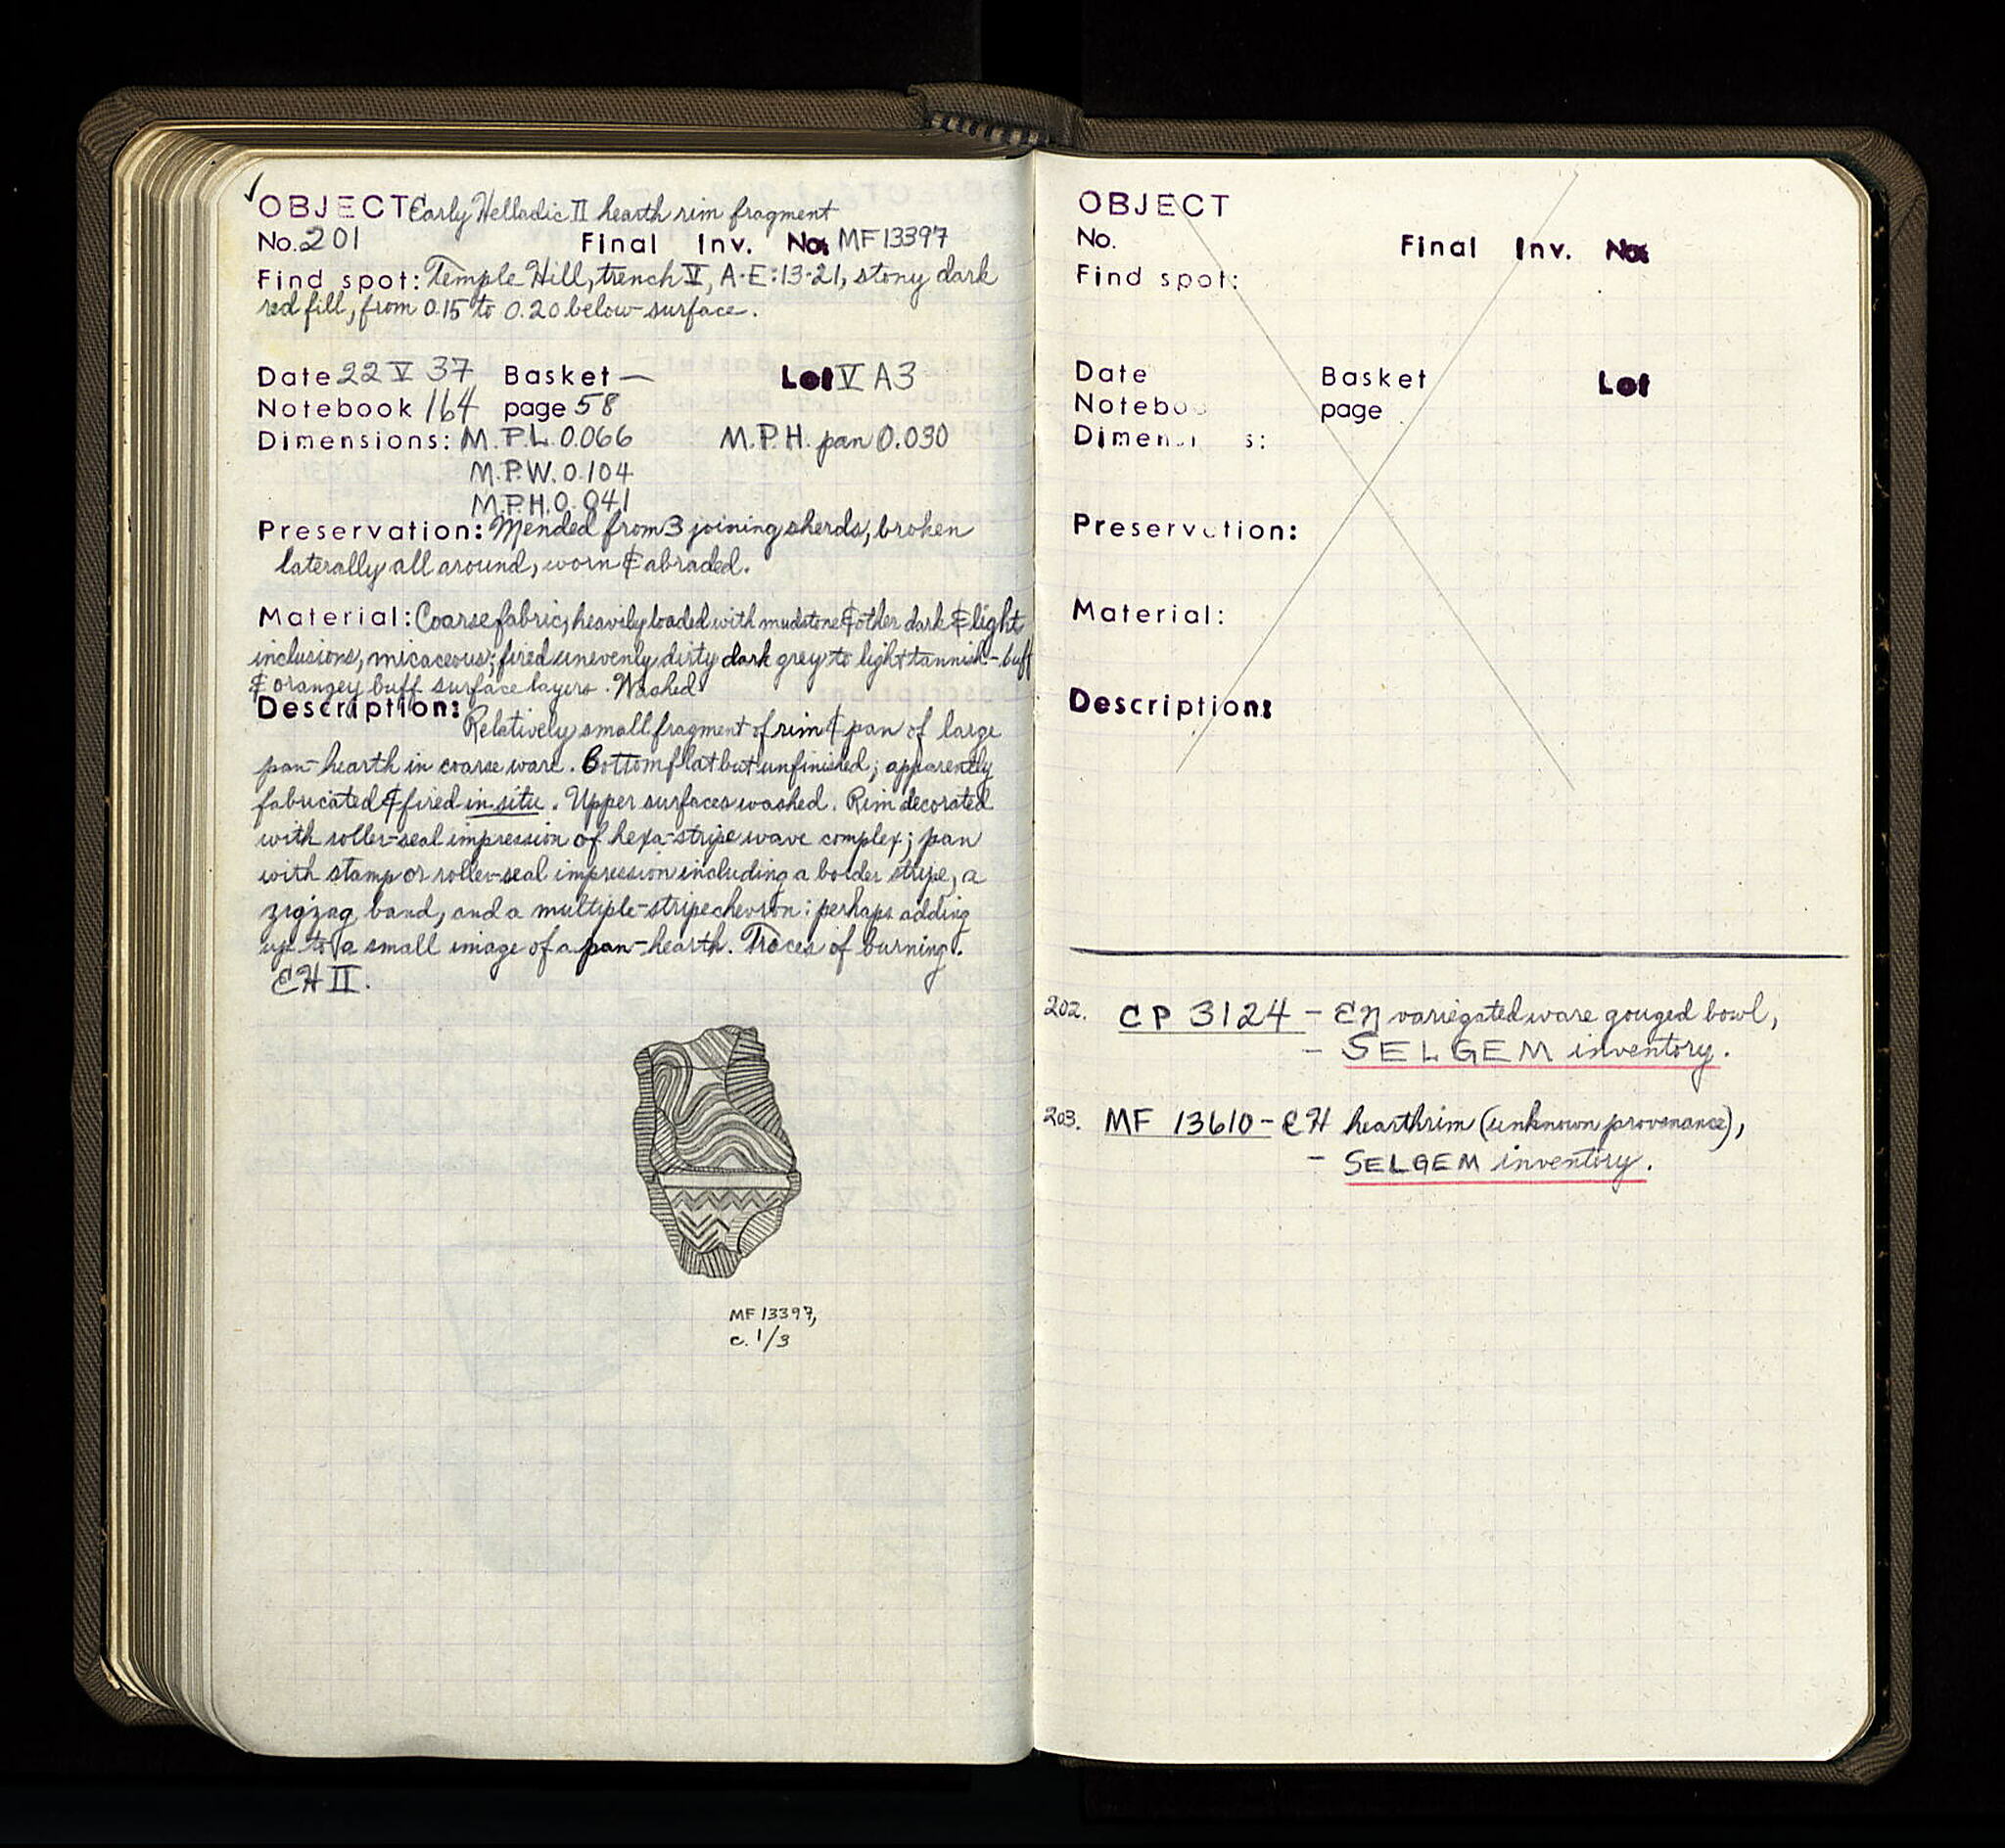 ✓OBJECT Early Helladic II hearth rim fragment
No. 201 Final Inv. No. MF 13397
Find spot: Temple Hill, trench V, A-E:13-21, stony dark
red fill, from 0.15 to 0.20 below surface.
Date 22 V 37 Basket — Lot V A3
Notebook 164 page 58
Dimensions: M.P.L. 0.066 M.P.H. pan 0.030
M.P.W. 0.104
M.P.H. 0.041
Preservation: Mended from 3 joining sherds, broken
laterally all around, worn & abraded.
Material: Coarse fabric, heavily loaded with mudstone & other dark & light
inclusions, micaceous; fired unevenly dirty dark grey to light tannish-buff
& orangey buff surface layers. Washed
Description: Relatively small fragment of rim & pan of large
pan-hearth in coarse ware. Bottom flat but unfinished; apparently
fabricated & fired in situ. Upper surfaces washed. Rim decorated
with roller-seal impression of hexa-stripe wave complex; pan
with stamp or roller-seal impression including a border stripe, a
zigzag band, and a multiple-stripe chevron: perhaps adding
up to a small image of a pan-hearth. Traces of burning.
EH II.
MF 13397,
c. 1/3
OBJECT
No. Final Inv. No.
Find spot:
Date Basket Lot
Noteboo page
Dimen s:
Preservation:
Material:
Description:
202. CP 3124 - EN variegated ware gouged bowl,
- SELGEM inventory.
203. MF 13610 - EH hearth rim (unknown provenance),
- SELGEM inventory.